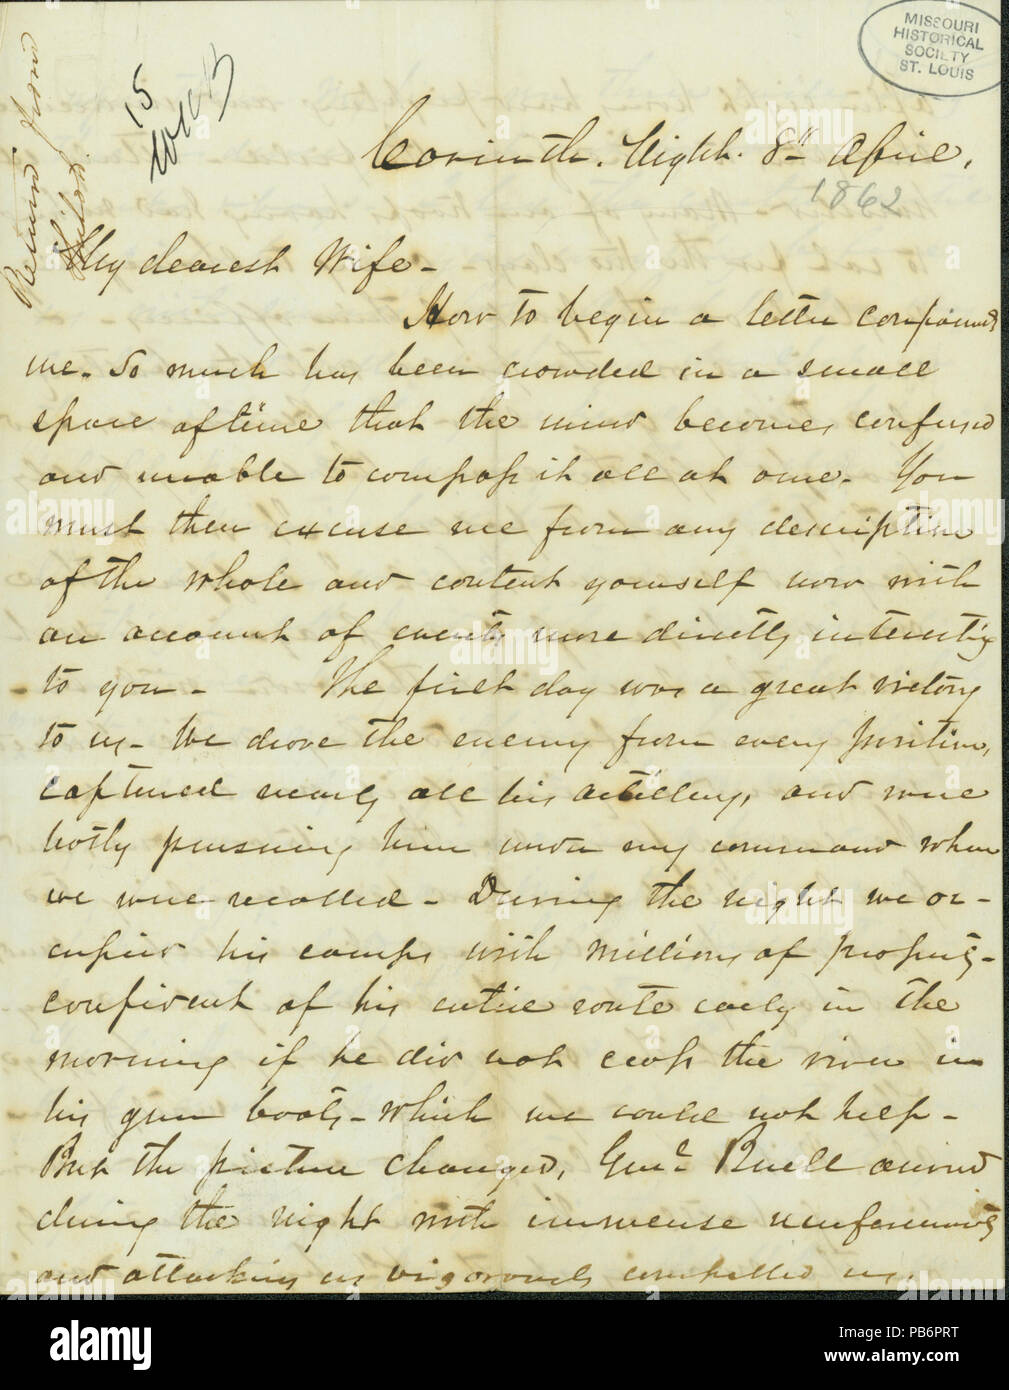 MISSOURI
HISTORICAL
SOCIETY
ST. LOUIS
Return from
Shiloh
15
Corinth. Night. 8th April.
1862
My dearest Wife -
How to begin a letter confounds
me. So much has been crowded in a small
space of time that the mind becomes confused
and unable to compass it all at once. You
must then excuse me from any description
of the whole and content yourself now with
an account of events more directly interesting
to you - The first day was a great victory
to us - We drove the enemy from every position,
captured nearly all his artillery, and were
hotly pursuing him under my command when
we were recalled - During the night we oc-
cupied his camps with millions of property -
confident of his entire route early in the
morning if he did not cross the river in
his gun boats - which we could not help -
But the picture changed, Genl Buell arrived
during the night with immense reinforcements
and attacking us vigorously compelled us,
alamy
alamy
alamy
alamy
alamy
alamy
alamy
alamy
Image ID: PB6PRT
www.alamy.com